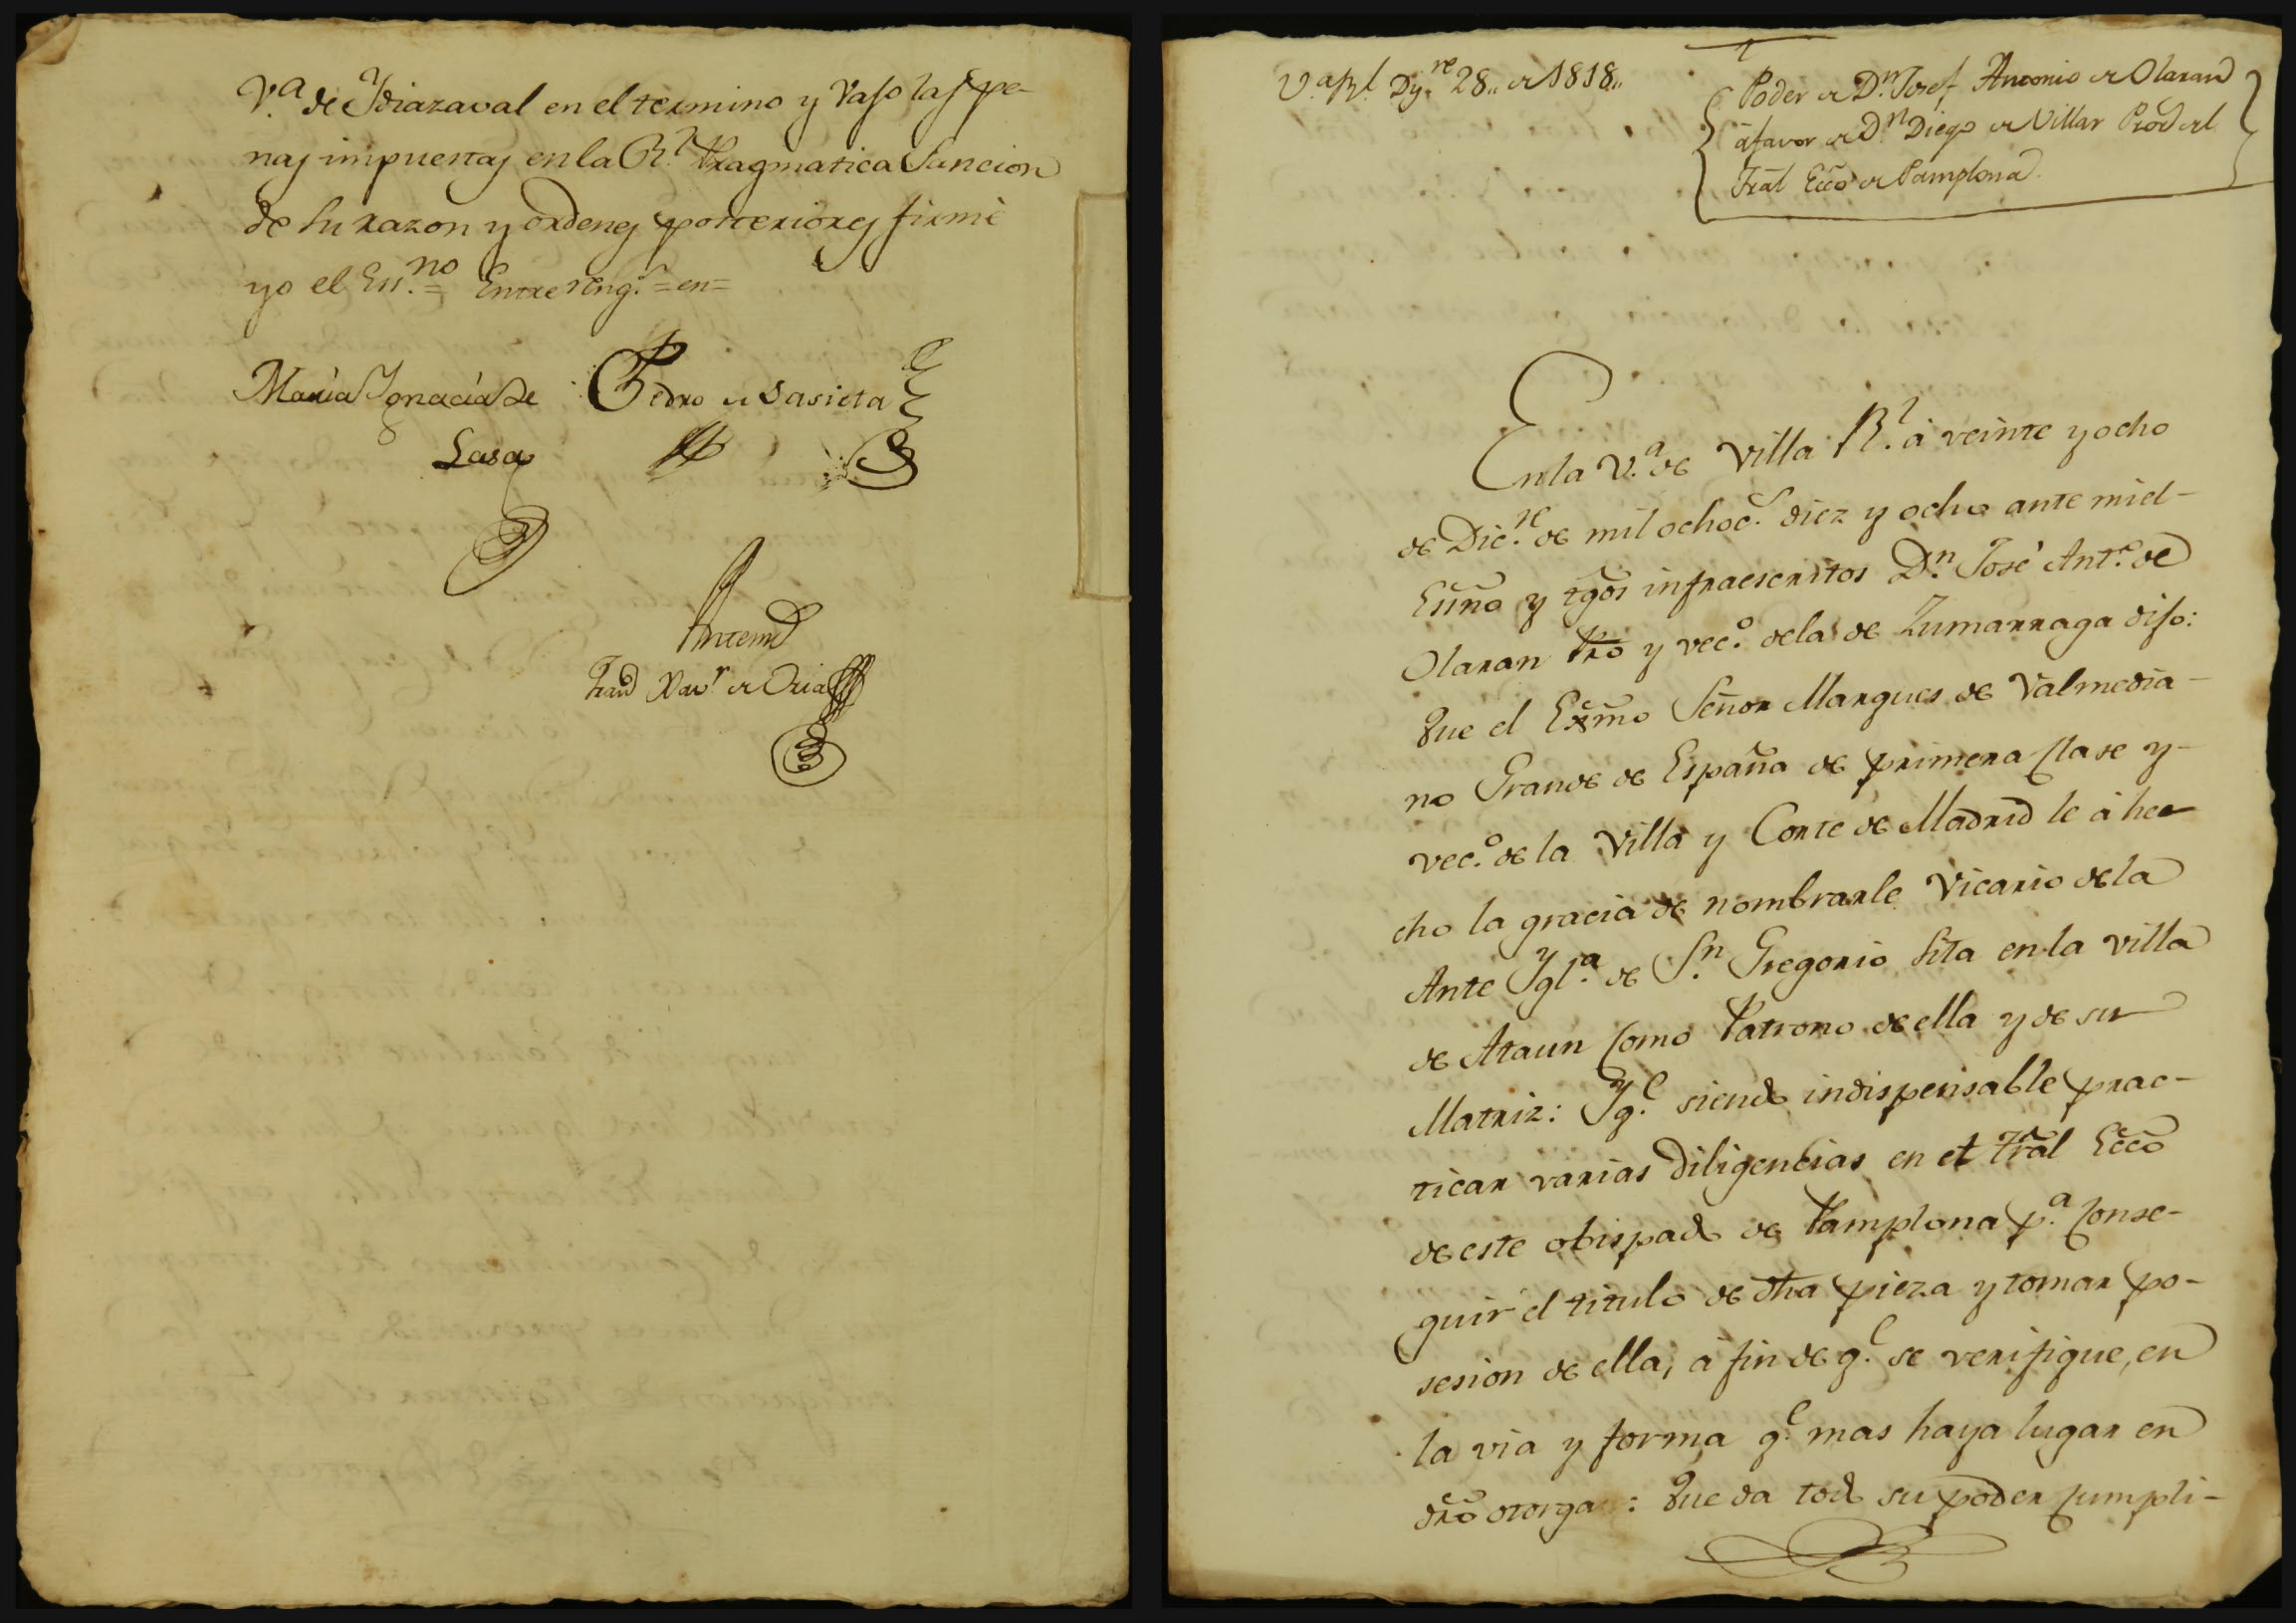 V.ª de Ydiazaval en el termino y vajo las pe-
nas impuestas en la R.l Pragmatica Sancion
de su razon y ordenes posteriores firmè
yo el Ess.no = Entre reng.s = en =
Maria Ygnacia de
Lasa
Pedro de Sasieta
Antemi
Fran.co Xav.r de Oria
V.ª R.l Dy.re 28,, de 1818,,
Poder de D.n Josef Antonio de Olaran
à favor de D.n Diego de Villar Prod.r del
Trãl Ecc̃o de Pamplona
En la V.ª de Villa R.l à veinte y ocho
de Dic.re de mil ochoc.s diez y ocho ante mi el
Ess̃no y tg̃os infraescritos D.n José Ant.º de
Olaran Pr̃o y vec.º de la de Zumarraga dijo:
Que el Ex̃mo Señor Marques de Valmedia-
no Grande de España de primera Clase y
vec.º de la Villa y Corte de Madrid le à he-
cho la gracia de nombrarle Vicario de la
Ante Ygl.ª de S.n Gregorio sita en la villa
de Ataun Como Patrono de ella y de su
Matriz: Y q.e siendo indispensable prac-
ticar varias diligencias en el Trãl Ecc̃o
de este obispado de Pamplona p.ª Conse-
guir el titulo de dh̃a pieza y tomar po-
sesion de ella, à fin de q.e se verifique, en
la via y forma q.e mas haya lugar en
dr̃o otorga : Que da todo su poder Cumpli-